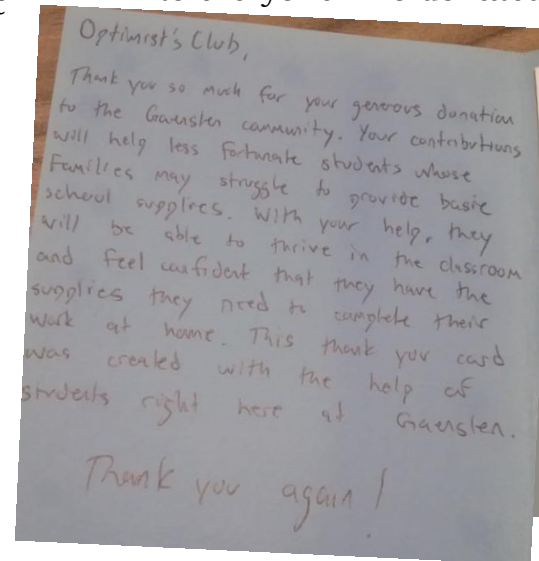 Optimist's Club,
Thank you so much for your generous donation
to the Gaenslen community. Your contributions
will help less fortunate students whose
families may struggle to provide basic
school supplies. With your help, they
will be able to thrive in the classroom
and feel confident that they have the
supplies they need to complete their
work at home. This thank you card
was created with the help of
students right here at Gaenslen.
Thank you again!